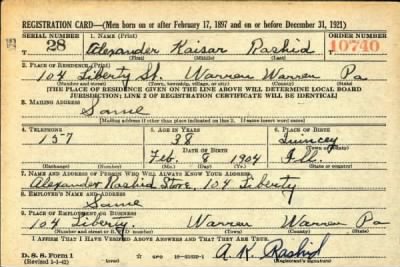 REGISTRATION CARD—(Men born on or after February 17, 1897 and on or before December 31, 1921)
SERIAL NUMBER 1. NAME (Print) ORDER NUMBER
28 Alexander Kaisar Rashid 10740
(First) (Middle) (Last)
2. PLACE OF RESIDENCE (Print)
104 Liberty St. Warren Warren Pa
(Number and street) (Town, township, village, or city) (County) (State)
[THE PLACE OF RESIDENCE GIVEN ON THE LINE ABOVE WILL DETERMINE LOCAL BOARD
JURISDICTION; LINE 2 OF REGISTRATION CERTIFICATE WILL BE IDENTICAL]
3. MAILING ADDRESS
Same
[Mailing address if other than place indicated on line 2. If same insert word same]
4. TELEPHONE 5. AGE IN YEARS 6. PLACE OF BIRTH
157 38 Quincey
DATE OF BIRTH (Town or county)
Feb. 8 1904 Ill.
(Exchange) (Number) (Mo.) (Day) (Yr.) (State or country)
7. NAME AND ADDRESS OF PERSON WHO WILL ALWAYS KNOW YOUR ADDRESS
Alexander Rashid Store, 104 Liberty
8. EMPLOYER'S NAME AND ADDRESS
Same
9. PLACE OF EMPLOYMENT OR BUSINESS
104 Liberty. Warren Warren Pa
(Number and street or R. F. D. number) (Town) (County) (State)
I AFFIRM THAT I HAVE VERIFIED ABOVE ANSWERS AND THAT THEY ARE TRUE.
D. S. S. Form 1
(Revised 1-1-42) GPO A. K. Rashid
(Registrant's signature)